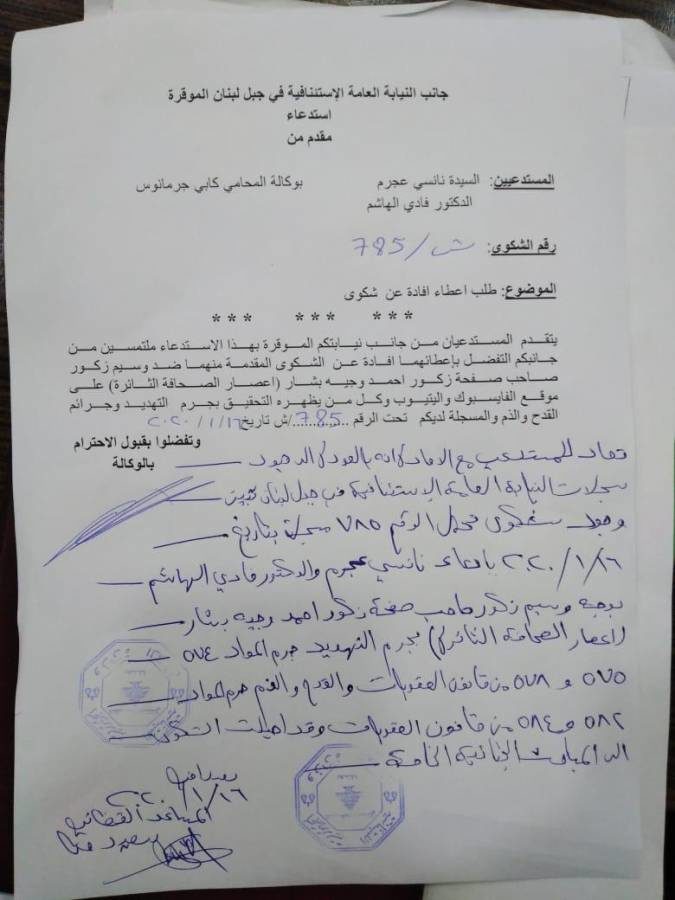 جانب النيابة العامة الإستئنافية في جبل لبنان الموقرة
استدعاء
مقدم من
المستدعيين: السيدة نانسي عجرم بوكالة المحامي كابي جرمانوس
الدكتور فادي الهاشم
رقم الشكوى: 785/ش
الموضوع: طلب اعطاء افادة عن شكوى
*** *** ***
يتقدم المستدعيان من جانب نيابتكم الموقرة بهذا الاستدعاء ملتمسين من
جانبكم التفضل بإعطائهما افادة عن الشكوى المقدمة منهما ضد وسيم زكور
صاحب صفحة زكور احمد وجيه بشار (اعصار الصحافة الثائرة) على
موقع الفايسبوك واليتيوب وكل من يظهره التحقيق بجرم التهديد وجرائم
القدح والذم والمسجلة لديكم تحت الرقم ...785.../ش تاريخ ٢٠٢٠/١/١٦
وتفضلوا بقبول الاحترام
بالوكالة
تعاد للمستدعي مع الافادة انه بالعودة الى
سجلات النيابة العامة الاستئنافية في جبل لبنان تبين
وجود شكوى تحمل الرقم ٧٨٥ مسجلة بتاريخ
٢٠٢٠/١/١٦ بادعاء نانسي عجرم والدكتور فادي الهاشم
بوجه وسيم زكور صاحب صفحة زكور احمد وجيه بشار
(اعصار الصحافة الثائرة) بجرم التهديد جرم المواد ٥٧٤
٥٧٥ و ٥٧٨ من قانون العقوبات والقدح والذم جرم المواد
٥٨٢ و ٥٨٤ من قانون العقوبات وقد احيلت الشكوى
الى المباحث الجنائية الخاصة
بعبدا في
٢٠٢٠/١/١٦
المساعد القضائي